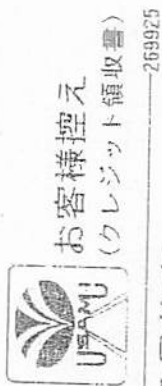 USAMI
お客様控え
(クレジット領収書)
269925